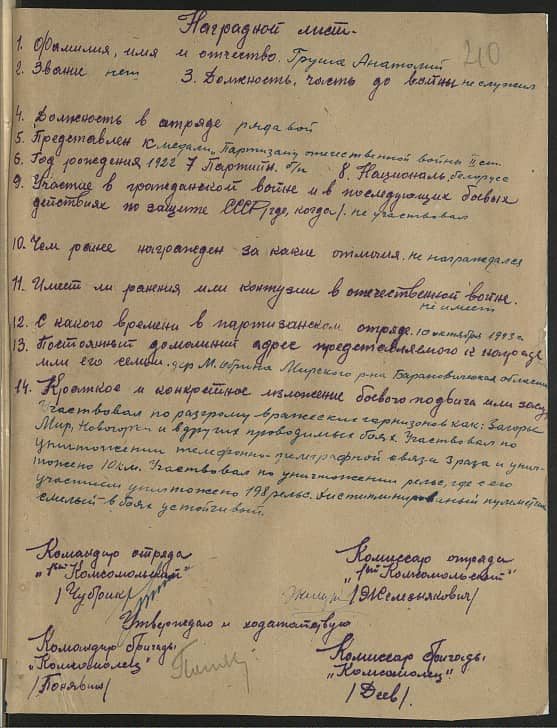 Наградной лист.
1. Фамилия, имя и отчество. Груша Анатолий
2. Звание нет 3. Должность, часть до войны не служил
4. Должность в отряде рядовой
5. Представлен к медали „Партизану отечественной войны II ст.
6. Год рождения 1922 7 Партийн. б/п 8. Националь. белорусс
9. Участие в гражданской войне и в последующих боевых
действиях по защите СССР/где, когда/. не участвовал
10. Чем ранее награжден за какие отличия. не награждался
11. Имеет ли ранения или контузии в отечественной войне.
не имеет
12. С какого времени в партизанском отряде. 10 октября 1943 г.
13. Постоянный домашний адрес представляемого к награде
или его семьи. дер М. Мирского р-на Барановичская области
14. Краткое и конкретное изложение боевого подвига или засл
Участвовал по разгрому вражеских гарнизонов как: Загорье
Мир, и в других проводимых боях. Участвовал по
уничтожении телефонно-телеграфной связи 3 раза и унич-
тожено 10 км. Участвовал по уничтожении рельс, где с его
участием уничтожено 198 рельс. Дисциплинированый пулеметчик
смелый в боях устойчивый.
Командир отряда
„1ый Комсомольский"
/Чубрик/
Комиссар отряда
„1ый Комсомольский"
/Железнякович/
Утверждаю и ходатайствую
Командир бригады
„Комсомолец"
Комиссар бригады
„Комсомолец"
/Деев/.